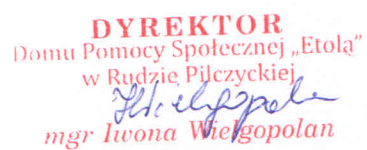 DYREKTOR
Domu Pomocy Społecznej „Etolą”
w Rudzie Pilczyckiej
mgr Iwona Wielgopolan